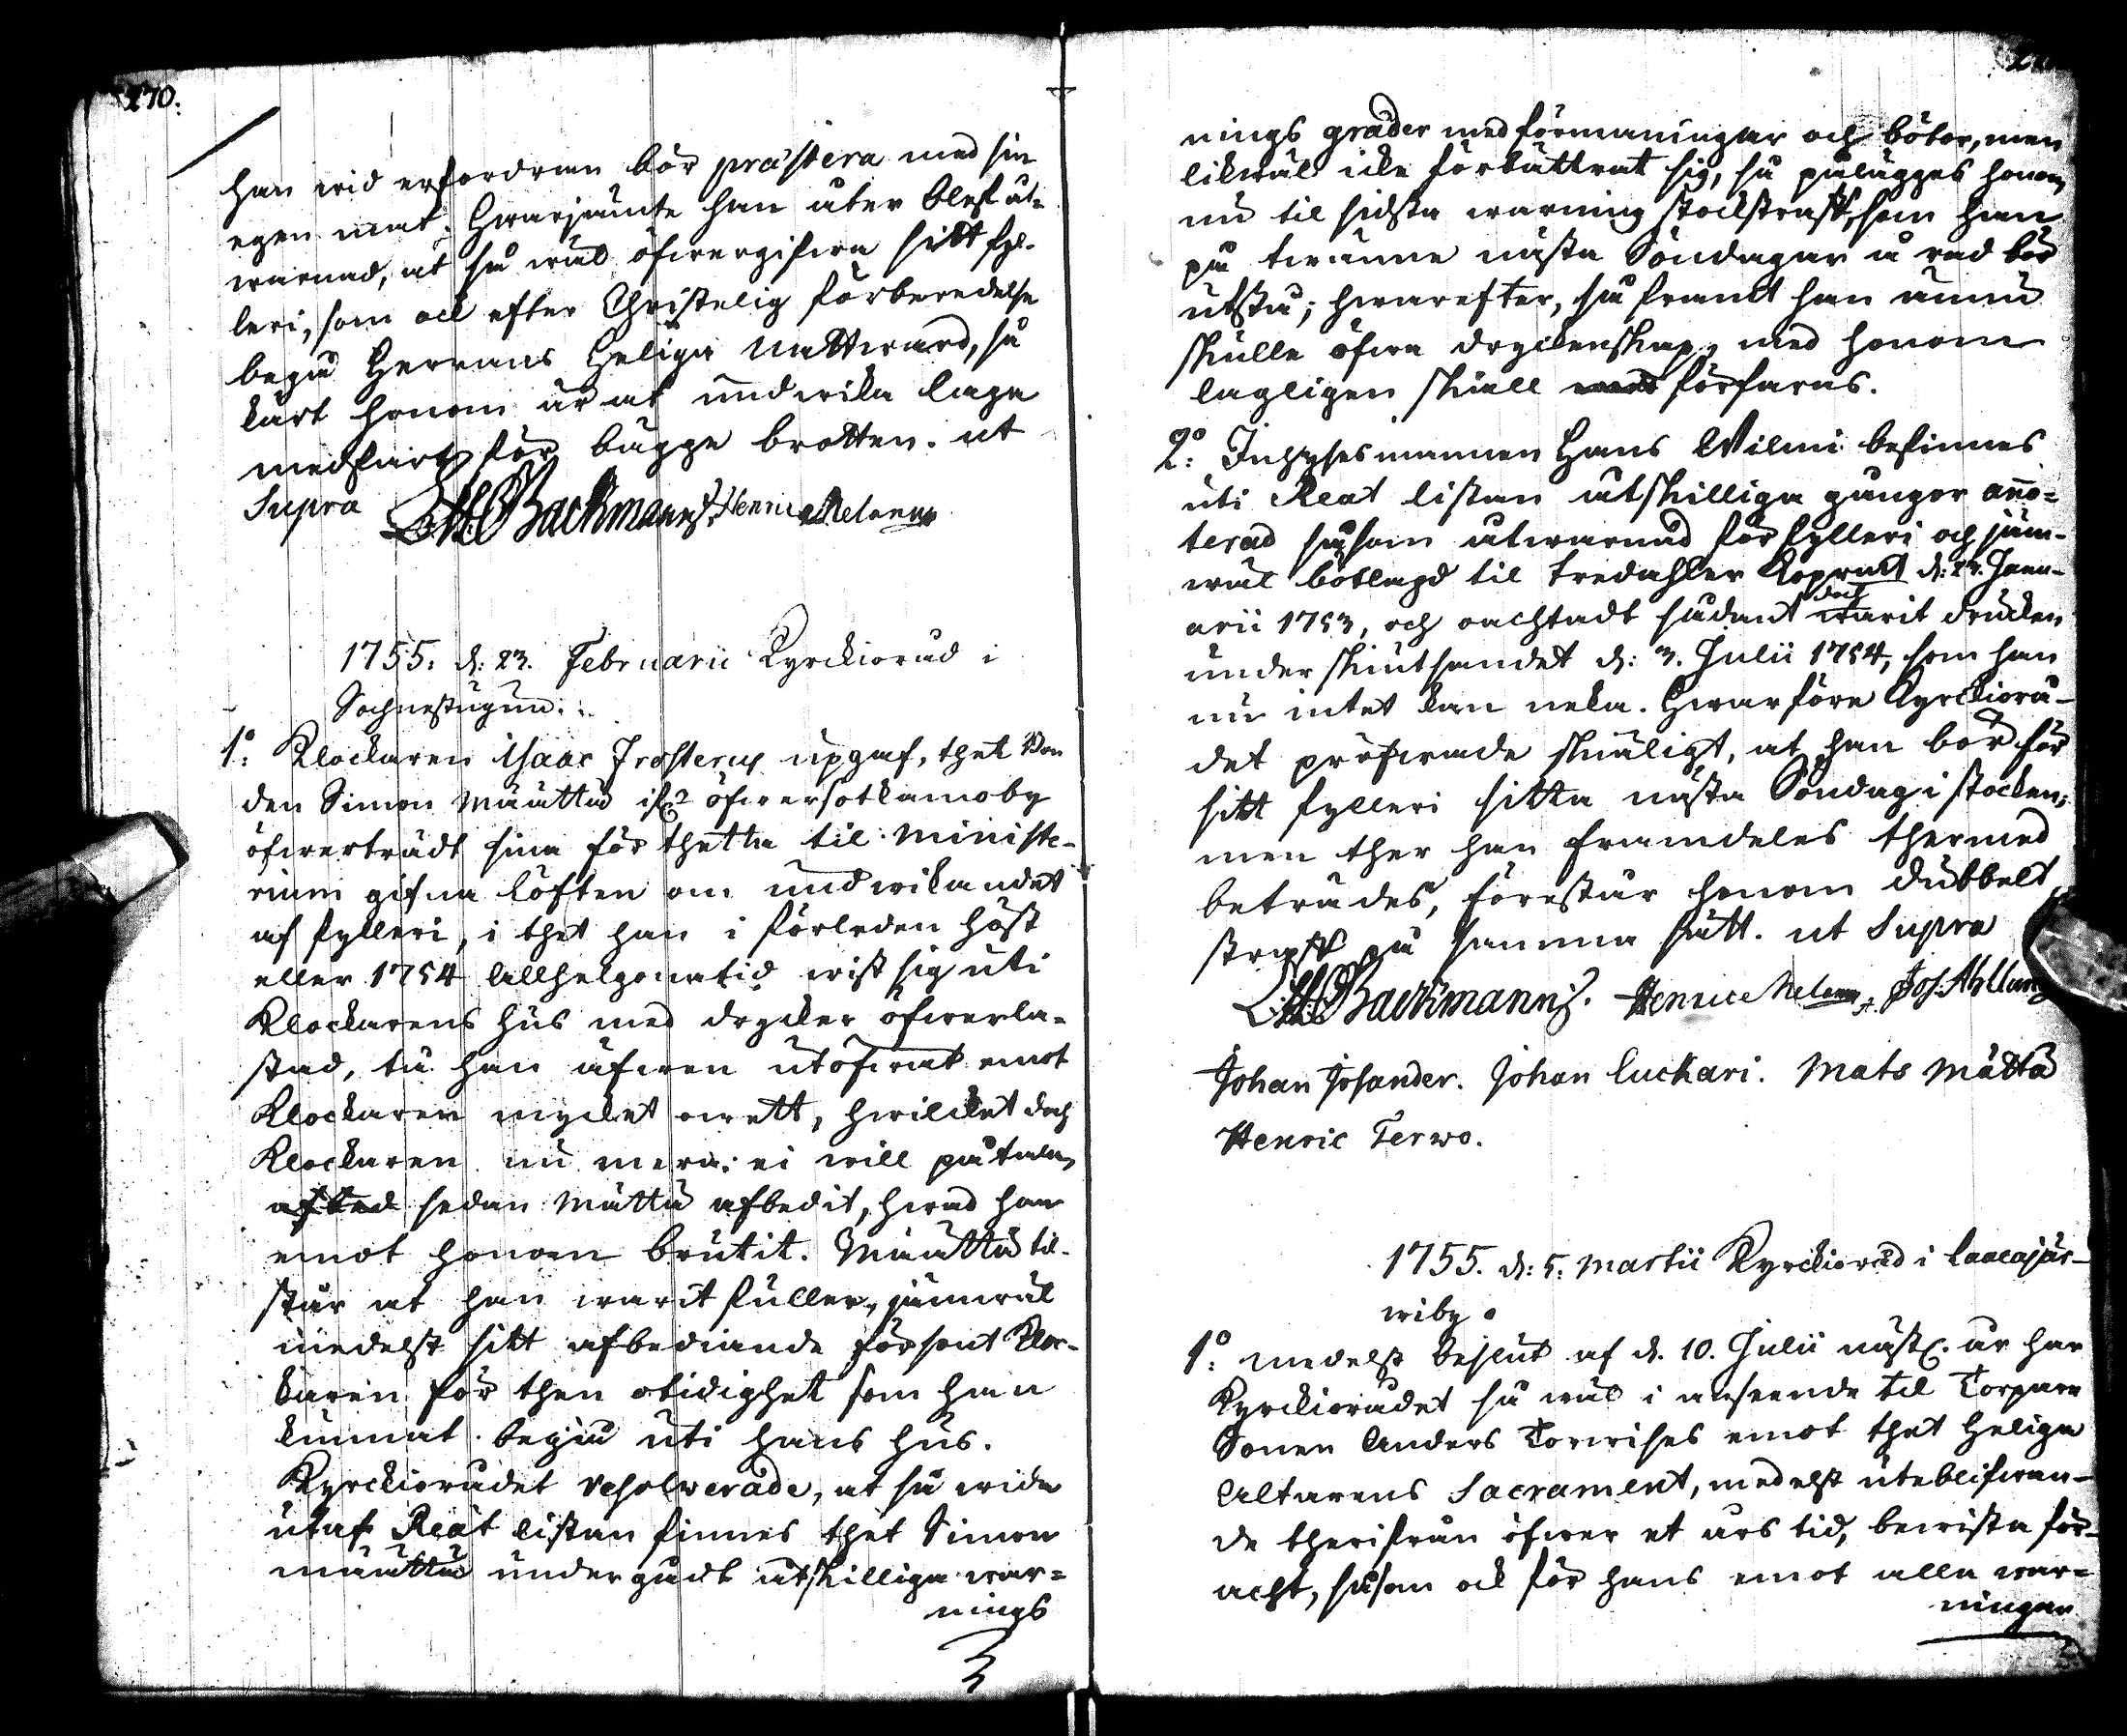 270.
han wid erfordran bör præstera med sin
egen mat. Hwarjämte han äfven blef åt-
warnad, at så wäl öfwergifwa sitt fyl-
leri, som ock efter Christelig förberedelse
begå Herrans Heliga Nattward, så
kärt honom är at undwika laga
medfart för bägge brotten. ut
Supra
1755. d: 23. Februarii Kyrckioråd i
Sochnestugun.
1:o Klockaren Isaac Frosterus upgaf, thet Bon
den Simon Määttä ifrån öfwersotkamoby
öfwerträdt sina för thetta til Ministe-
rium gifna löften om undwikandet
af fylleri, i thet han i förleden höst
eller 1754 Allhelgonatid wist sig uti
Klockarens hus med drycker öfwerla-
stad, tå han äfwen utöfwat emot
Klockaren mycket owett, hwilcket doch
Klockaren nu mera ei will påtala,
sedan Mättä afbedit, hwad han
emot honom brutit. Määttä til-
står at han warit fuller, jämwäl
medelst sitt afbediande försont Kloc-
karen för then otidighet som han
kunnat begå uti hans hus.
Kyrckiorådet resolverade, at så wida
utaf Reat listan finnes thet Simon
Määttä undergådt åtskilliga war-
nings
nings grader med förmaningar och böter, men
likwäl icke förbättrat sig, så pålägges honom
nu til sidsta warning stockstraff, som han
på twänne nästa Söndagar å rad bör
utstå; hwarefter, så framt han ännu
skulle öfwa dryckenskap, med honom
lagligen skall förfaras.
2:o Inhysesmannen Hans Wilmi befinnes
uti Reat listan åtskilliga gånger ano-
terad såsom åtwarnad för fylleri och jäm-
wäl bötlagd til tredahler Kopmt d: 23. Janu-
arii 1753, och oachtadt sådant doch warit drucken
under skiutsandet d: 3. Julii 1754, som han
nu intet kan neka. Hwarföre Kyrckiorå-
det pröfwade skiäligt, at han bör för
sitt fylleri sitta nästa Söndag i stocken;
men ther han framdeles thermed
beträdes, förestår honom dubbelt
straff på samma sätt. ut Supra
Johan Josander. Johan Luckari. Mats Mättä
Henric Terwo.
1755. d: 5. Martii Kyrckioråd i Laacajär-
wiby.
1:o Medelst beslut af d. 10. Julii nästl. år har
Kyrckiorådet så wäl i anseende til Torpare
Sonen Anders Torwises emot thet Heliga
Altarens Sacrament, medelst uteblifwan-
de therifrån öfwer et års tid, bewista för-
acht, såsom ock för hans emot alla war-
ningar